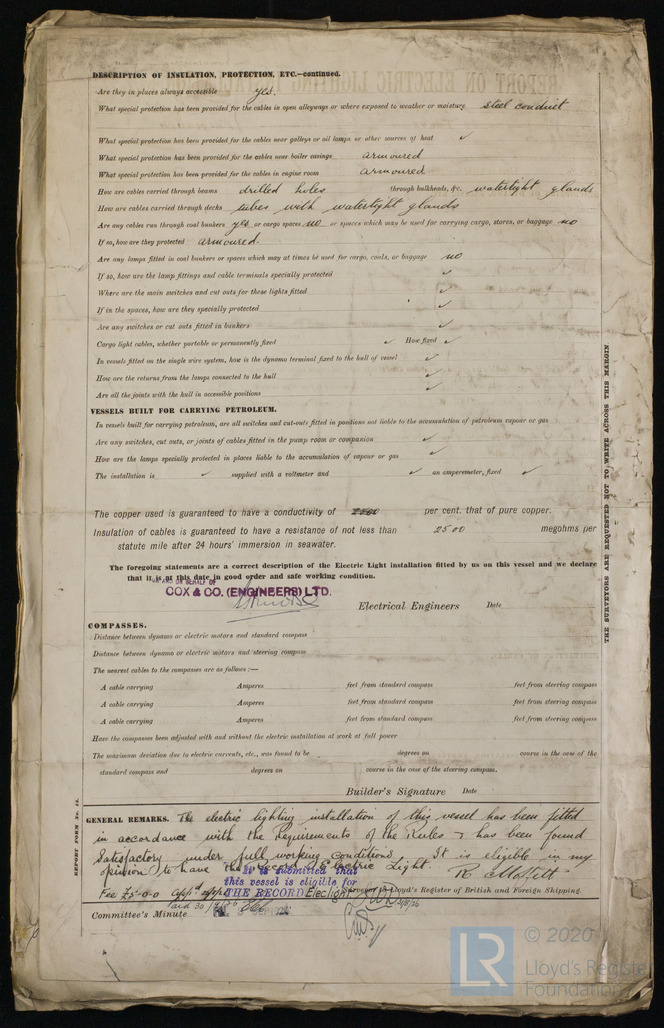 DESCRIPTION OF INSULATION, PROTECTION, ETC.—continued.
Are they in places always accessible yes.
What special protection has been provided for the cables in open alleyways or where exposed to weather or moisture steel conduit
What special protection has been provided for the cables near galleys or oil lamps or other sources of heat ✓
What special protection has been provided for the cables near boiler casings armoured
What special protection has been provided for the cables in engine room armoured
How are cables carried through beams drilled holes through bulkheads, &c. watertight glands
How are cables carried through decks tubes with watertight glands
Are any cables run through coal bunkers yes or cargo spaces no or spaces which may be used for carrying cargo, stores, or baggage no
If so, how are they protected armoured.
Are any lamps fitted in coal bunkers or spaces which may at times be used for cargo, coals, or baggage no
If so, how are the lamp fittings and cable terminals specially protected ✓
Where are the main switches and cut outs for these lights fitted ✓
If in the spaces, how are they specially protected ✓
Are any switches or cut outs fitted in bunkers ✓
Cargo light cables, whether portable or permanently fixed ✓ How fixed ✓
In vessels fitted on the single wire system, how is the dynamo terminal fixed to the hull of vessel ✓
How are the returns from the lamps connected to the hull ✓
Are all the joints with the hull in accessible positions ✓
VESSELS BUILT FOR CARRYING PETROLEUM.
In vessels built for carrying petroleum, are all switches and cut-outs fitted in positions not liable to the accumulation of petroleum vapour or gas
Are any switches, cut outs, or joints of cables fitted in the pump room or companion ✓
How are the lamps specially protected in places liable to the accumulation of vapour or gas ✓
The installation is ✓ supplied with a voltmeter and ✓ an amperemeter, fixed ✓
The copper used is guaranteed to have a conductivity of per cent. that of pure copper.
Insulation of cables is guaranteed to have a resistance of not less than 2500 megohms per
statute mile after 24 hours' immersion in seawater.
The foregoing statements are a correct description of the Electric Light installation fitted by us on this vessel and we declare
that it is at this date in good order and safe working condition.
FOR AND ON BEHALF OF
COX & CO. (ENGINEERS) LTD.
Electrical Engineers Date
COMPASSES.
Distance between dynamo or electric motors and standard compass
Distance between dynamo or electric motors and steering compass
The nearest cables to the compasses are as follows :—
A cable carrying Amperes feet from standard compass feet from steering compass
A cable carrying Amperes feet from standard compass feet from steering compass
A cable carrying Amperes feet from standard compass feet from steering compass
Have the compasses been adjusted with and without the electric installation at work at full power
The maximum deviation due to electric currents, etc., was found to be degrees on course in the case of the
standard compass and degrees on course in the case of the steering compass.
Builder's Signature Date
GENERAL REMARKS. The electric lighting installation of this vessel has been fitted
in accordance with the Requirements of the Rules & has been found
satisfactory under full working conditions. It is eligible in my
opinion to have the record Electric Light
It is submitted that
this vessel is eligible for
THE RECORD Elec light.
R. Moffett
Surveyor to Lloyd's Register of British and Foreign Shipping.
Fee £5-0-0
Paid 30
Committee's Minute
THE SURVEYORS ARE REQUESTED NOT TO WRITE ACROSS THIS MARGIN
REPORT FORM No. 14.
LR
© 2020
Lloyd's Register
Foundation